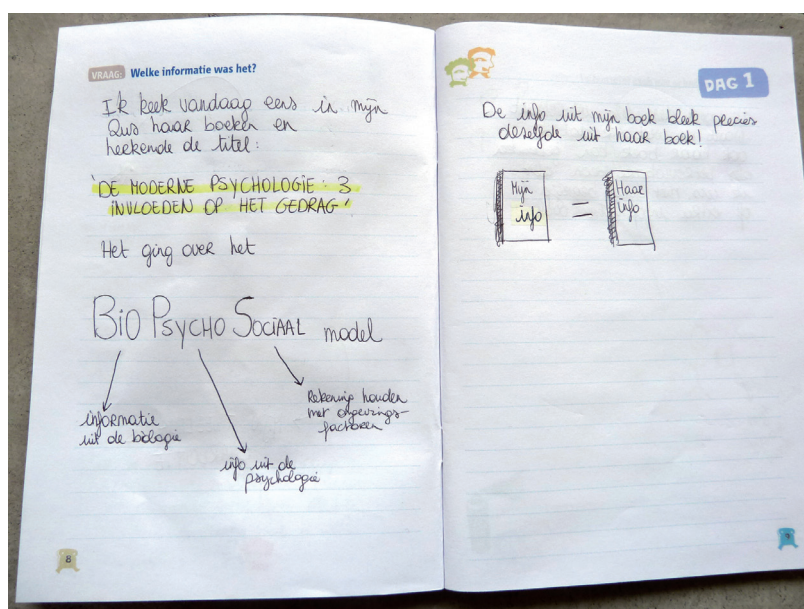 VRAAG: Welke informatie was het?
Ik keek vandaag eens in mijn
Qus haar boeken en
herkende de titel:
'DE MODERNE PSYCHOLOGIE: 3
INVLOEDEN OP HET GEDRAG'
Het ging over het
BIO PSYCHO SOCIAAL model
informatie
uit de biologie
info uit de
psychologie
Rekening houden
met omgevings-
factoren
8
DAG 1
De info uit mijn boek bleek precies
dezelfde uit haar boek!
Mijn
info
=
Haar
info